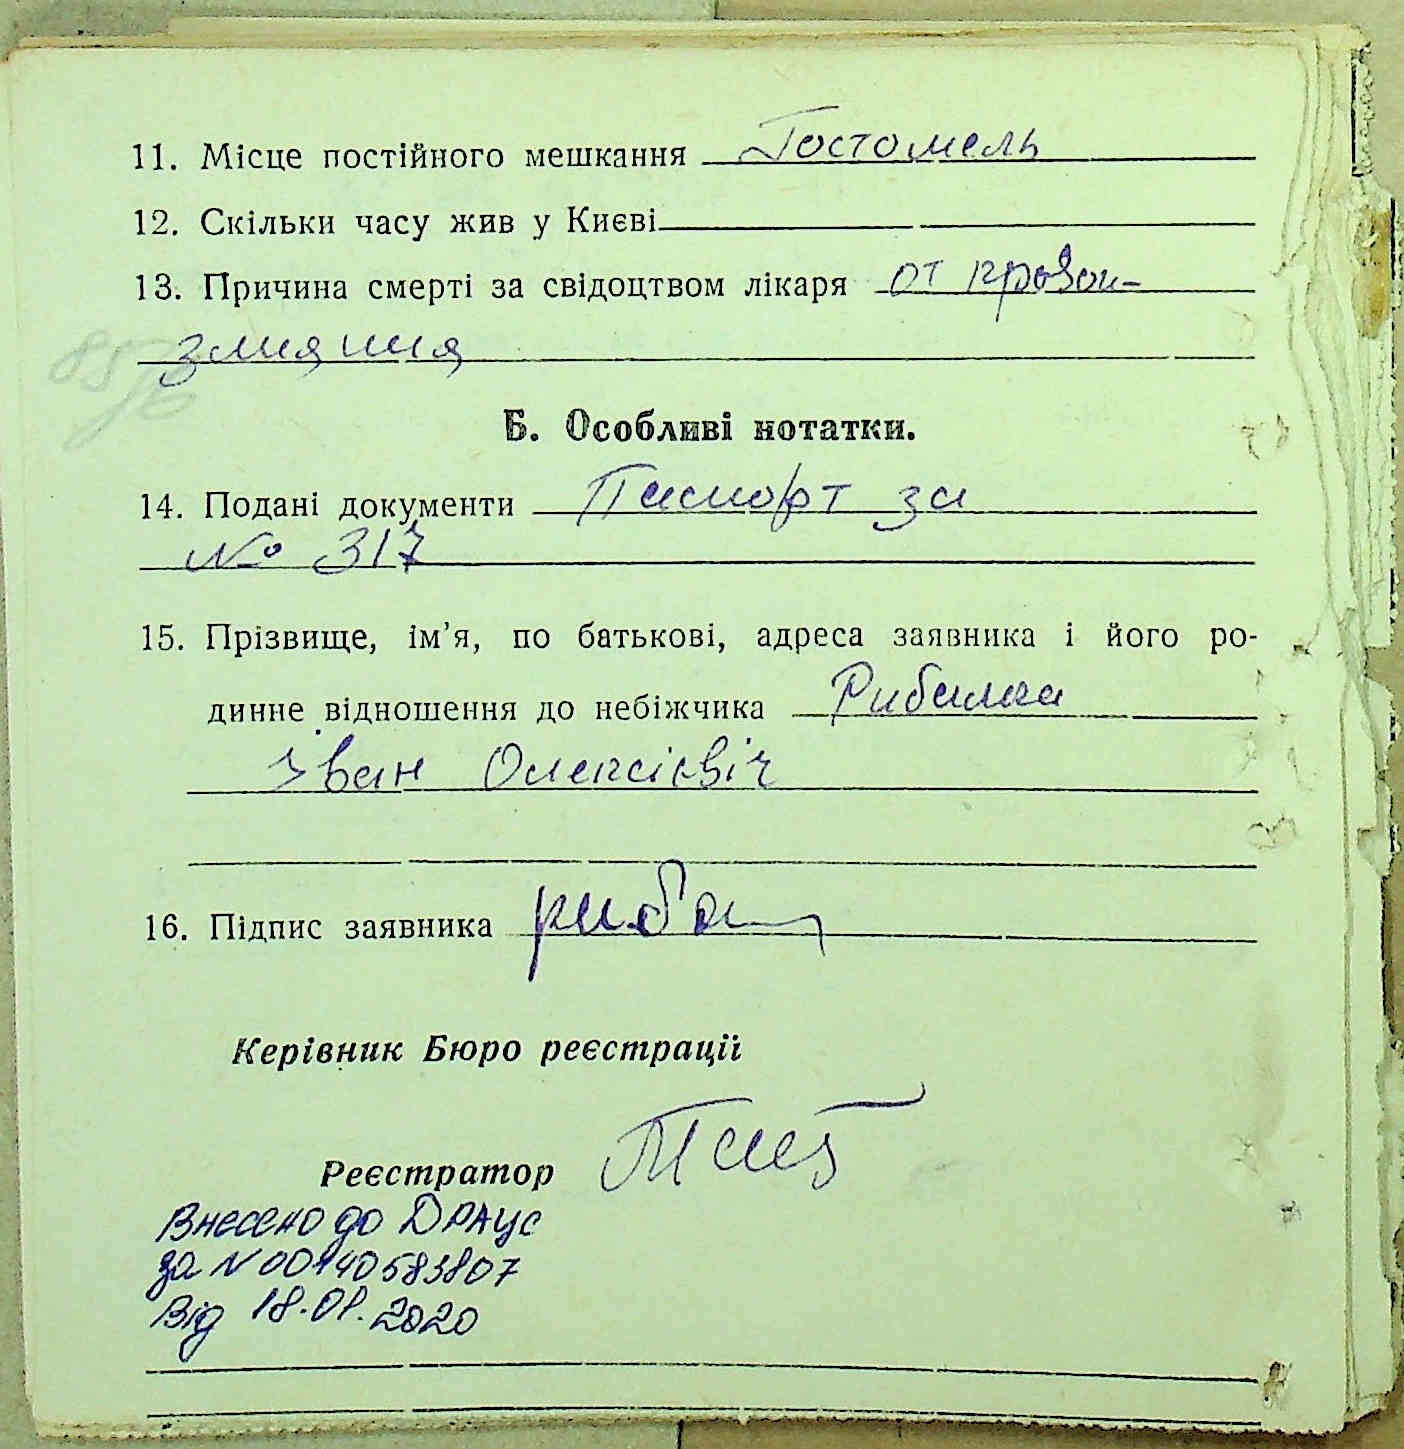 11. Місце постійного мешкання Гостомель
12. Скільки часу жив у Києві
13. Причина смерті за свідоцтвом лікаря от кровои-
злияния
Б. Особливі нотатки.
14. Подані документи Паспорт за
№ 317
15. Прізвище, ім'я, по батькові, адреса заявника і його ро-
динне відношення до небіжчика Рибалка
Іван Олексієвіч
16. Підпис заявника
Керівник Бюро реєстрації
Реєстратор
Внесено до ДРАЦС
за N 00140583807
Від 18.01.2020